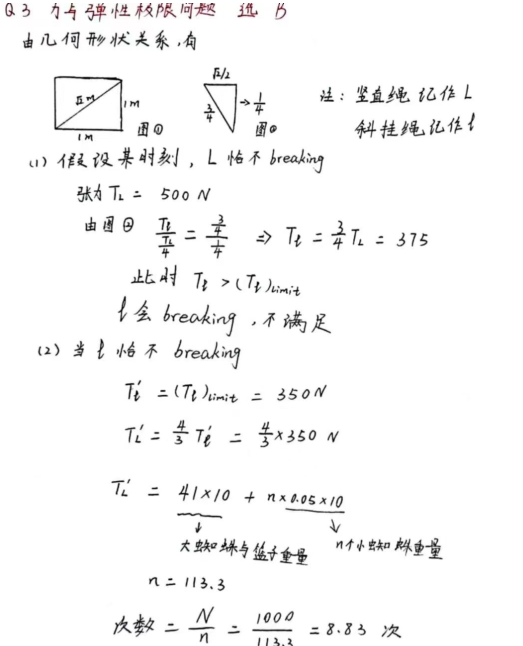 Q3 力与弹性极限问题 选 B
由几何形状关系,有
√2 m 1m 1m 图①
√2/2 3/4 → 1/4 图②
注:竖直绳记作 L
斜挂绳记作 ℓ
(1) 假设某时刻, L 恰不 breaking
张力 T_L = 500 N
由图② T_ℓ / (T_L/4) = (3/4) / (1/4) ⇒ T_ℓ = 3/4 T_L = 375
此时 T_ℓ > (T_ℓ)limit
ℓ会 breaking, 不满足
(2) 当 ℓ 恰不 breaking
T_ℓ' = (T_ℓ)limit = 350 N
T_L' = 4/3 T_ℓ' = 4/3 × 350 N
T_L' = 41×10 + n×0.05×10
↓ ↓
大蜘蛛与篮子重量 n个小蜘蛛重量
n = 113.3
次数 = N/n = 1000/113.3 = 8.83 次